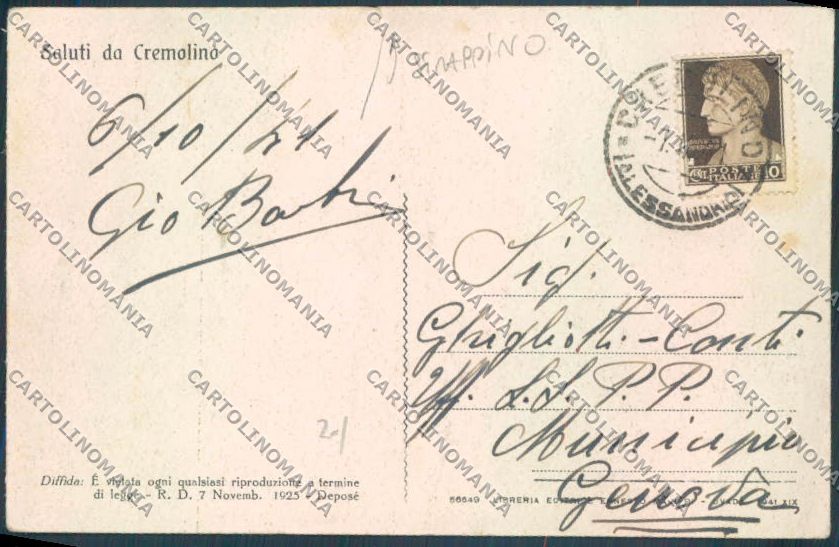 Saluti da Cremolino
6/10/41
Gio
CREMOLINO
(ALESSANDRIA)
POSTE
ITALIANE
CENT. 10
Sig.
Ghigliotti - Conti
Uff. LL. P. P.
Municipio
Genova
21
Diffida: È vietata ogni qualsiasi riproduzione a termine
di legge - R. D. 7 Novemb. 1925 - Deposé
56649 LIBRERIA EDITRICE ERNESTO - OVADA 1941 XIX
CARTOLINOMANIA